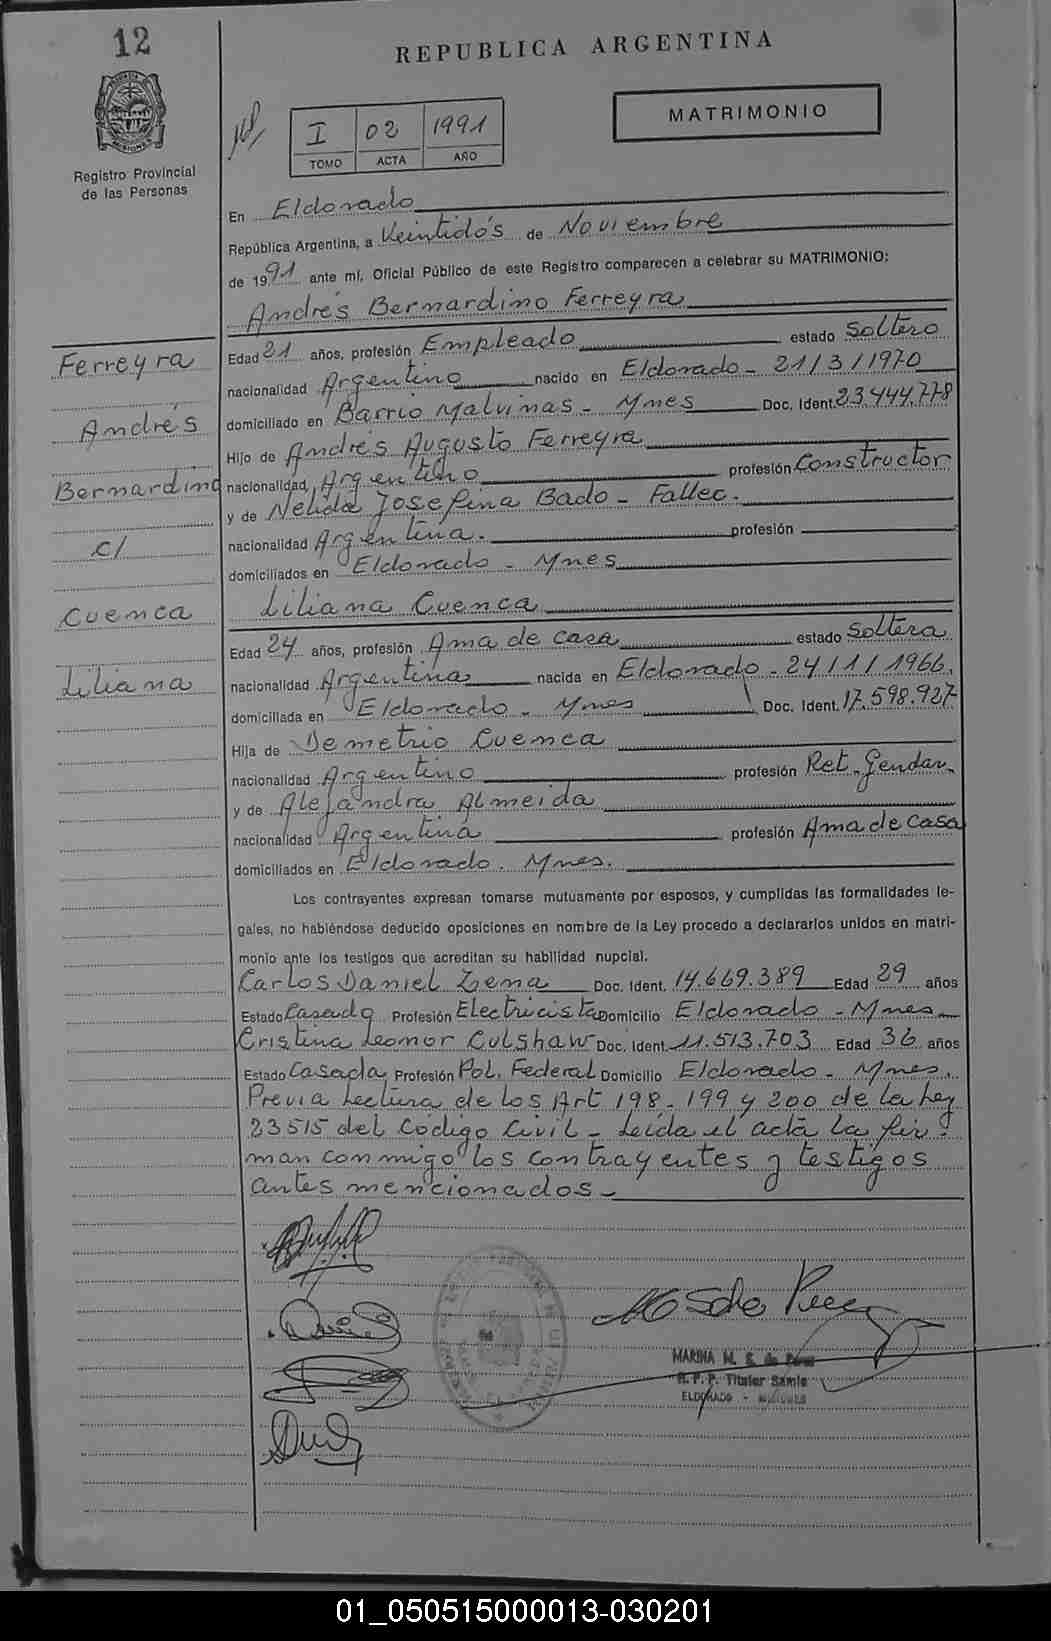 12
REPUBLICA ARGENTINA
Registro Provincial
de las Personas
I 02 1991
TOMO ACTA AÑO
MATRIMONIO
En Eldorado
República Argentina, a Veintidós de Noviembre
de 1991 ante mí, Oficial Público de este Registro comparecen a celebrar su MATRIMONIO:
Andrés Bernardino Ferreyra
Edad 21 años, profesión Empleado estado Soltero
nacionalidad Argentino nacido en Eldorado - 21/3/1970
domiciliado en Barrio Malvinas - Mnes Doc. Ident. 23.444.778
Hijo de Andrés Augusto Ferreyra
nacionalidad Argentino profesión Constructor
y de Nélida Josefina Bado - Fallec.
nacionalidad Argentina. profesión
domiciliados en Eldorado - Mnes
Ferreyra
Andrés
Bernardino
c/
Cuenca
Liliana
Liliana Cuenca
Edad 24 años, profesión Ama de casa estado Soltera
nacionalidad Argentina nacida en Eldorado - 24/1/1966.
domiciliada en Eldorado - Mnes Doc. Ident. 17.598.927
Hija de Demetrio Cuenca
nacionalidad Argentino profesión Ret. Gendar.
y de Alejandra Almeida
nacionalidad Argentina profesión Ama de Casa
domiciliados en Eldorado. Mnes.
Los contrayentes expresan tomarse mutuamente por esposos, y cumplidas las formalidades le-
gales, no habiéndose deducido oposiciones en nombre de la Ley procedo a declararlos unidos en matri-
monio ante los testigos que acreditan su habilidad nupcial.
Carlos Daniel Zena Doc. Ident. 14.669.389 Edad 29 años
Estado Casado Profesión Electricista Domicilio Eldorado - Mnes
Cristina Leonor Culshaw Doc. Ident. 11.513.703 Edad 36 años
Estado Casada Profesión Pol. Federal Domicilio Eldorado - Mnes.
Previa Lectura de los Art 198 - 199 y 200 de la Ley
23515 del Código Civil - Leída el acta la fir-
man conmigo los contrayentes y testigos
antes mencionados -
MARINA M. S. de Pérez
ELDORADO - MISIONES
01_050515000013-030201